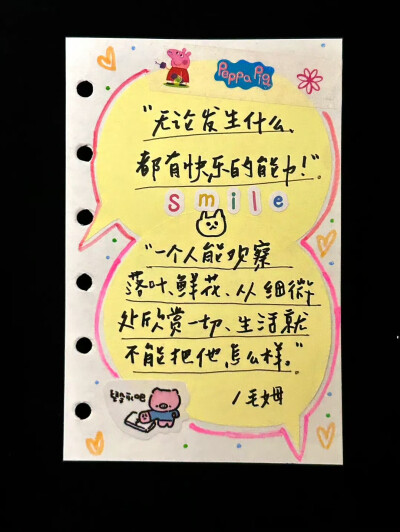 Peppa Pig
"无论发生什么、
都有快乐的能力!"。
smile
"一个人能观察
落叶、鲜花、从细微
处欣赏一切、生活就
不能把他怎么样。"
/毛姆